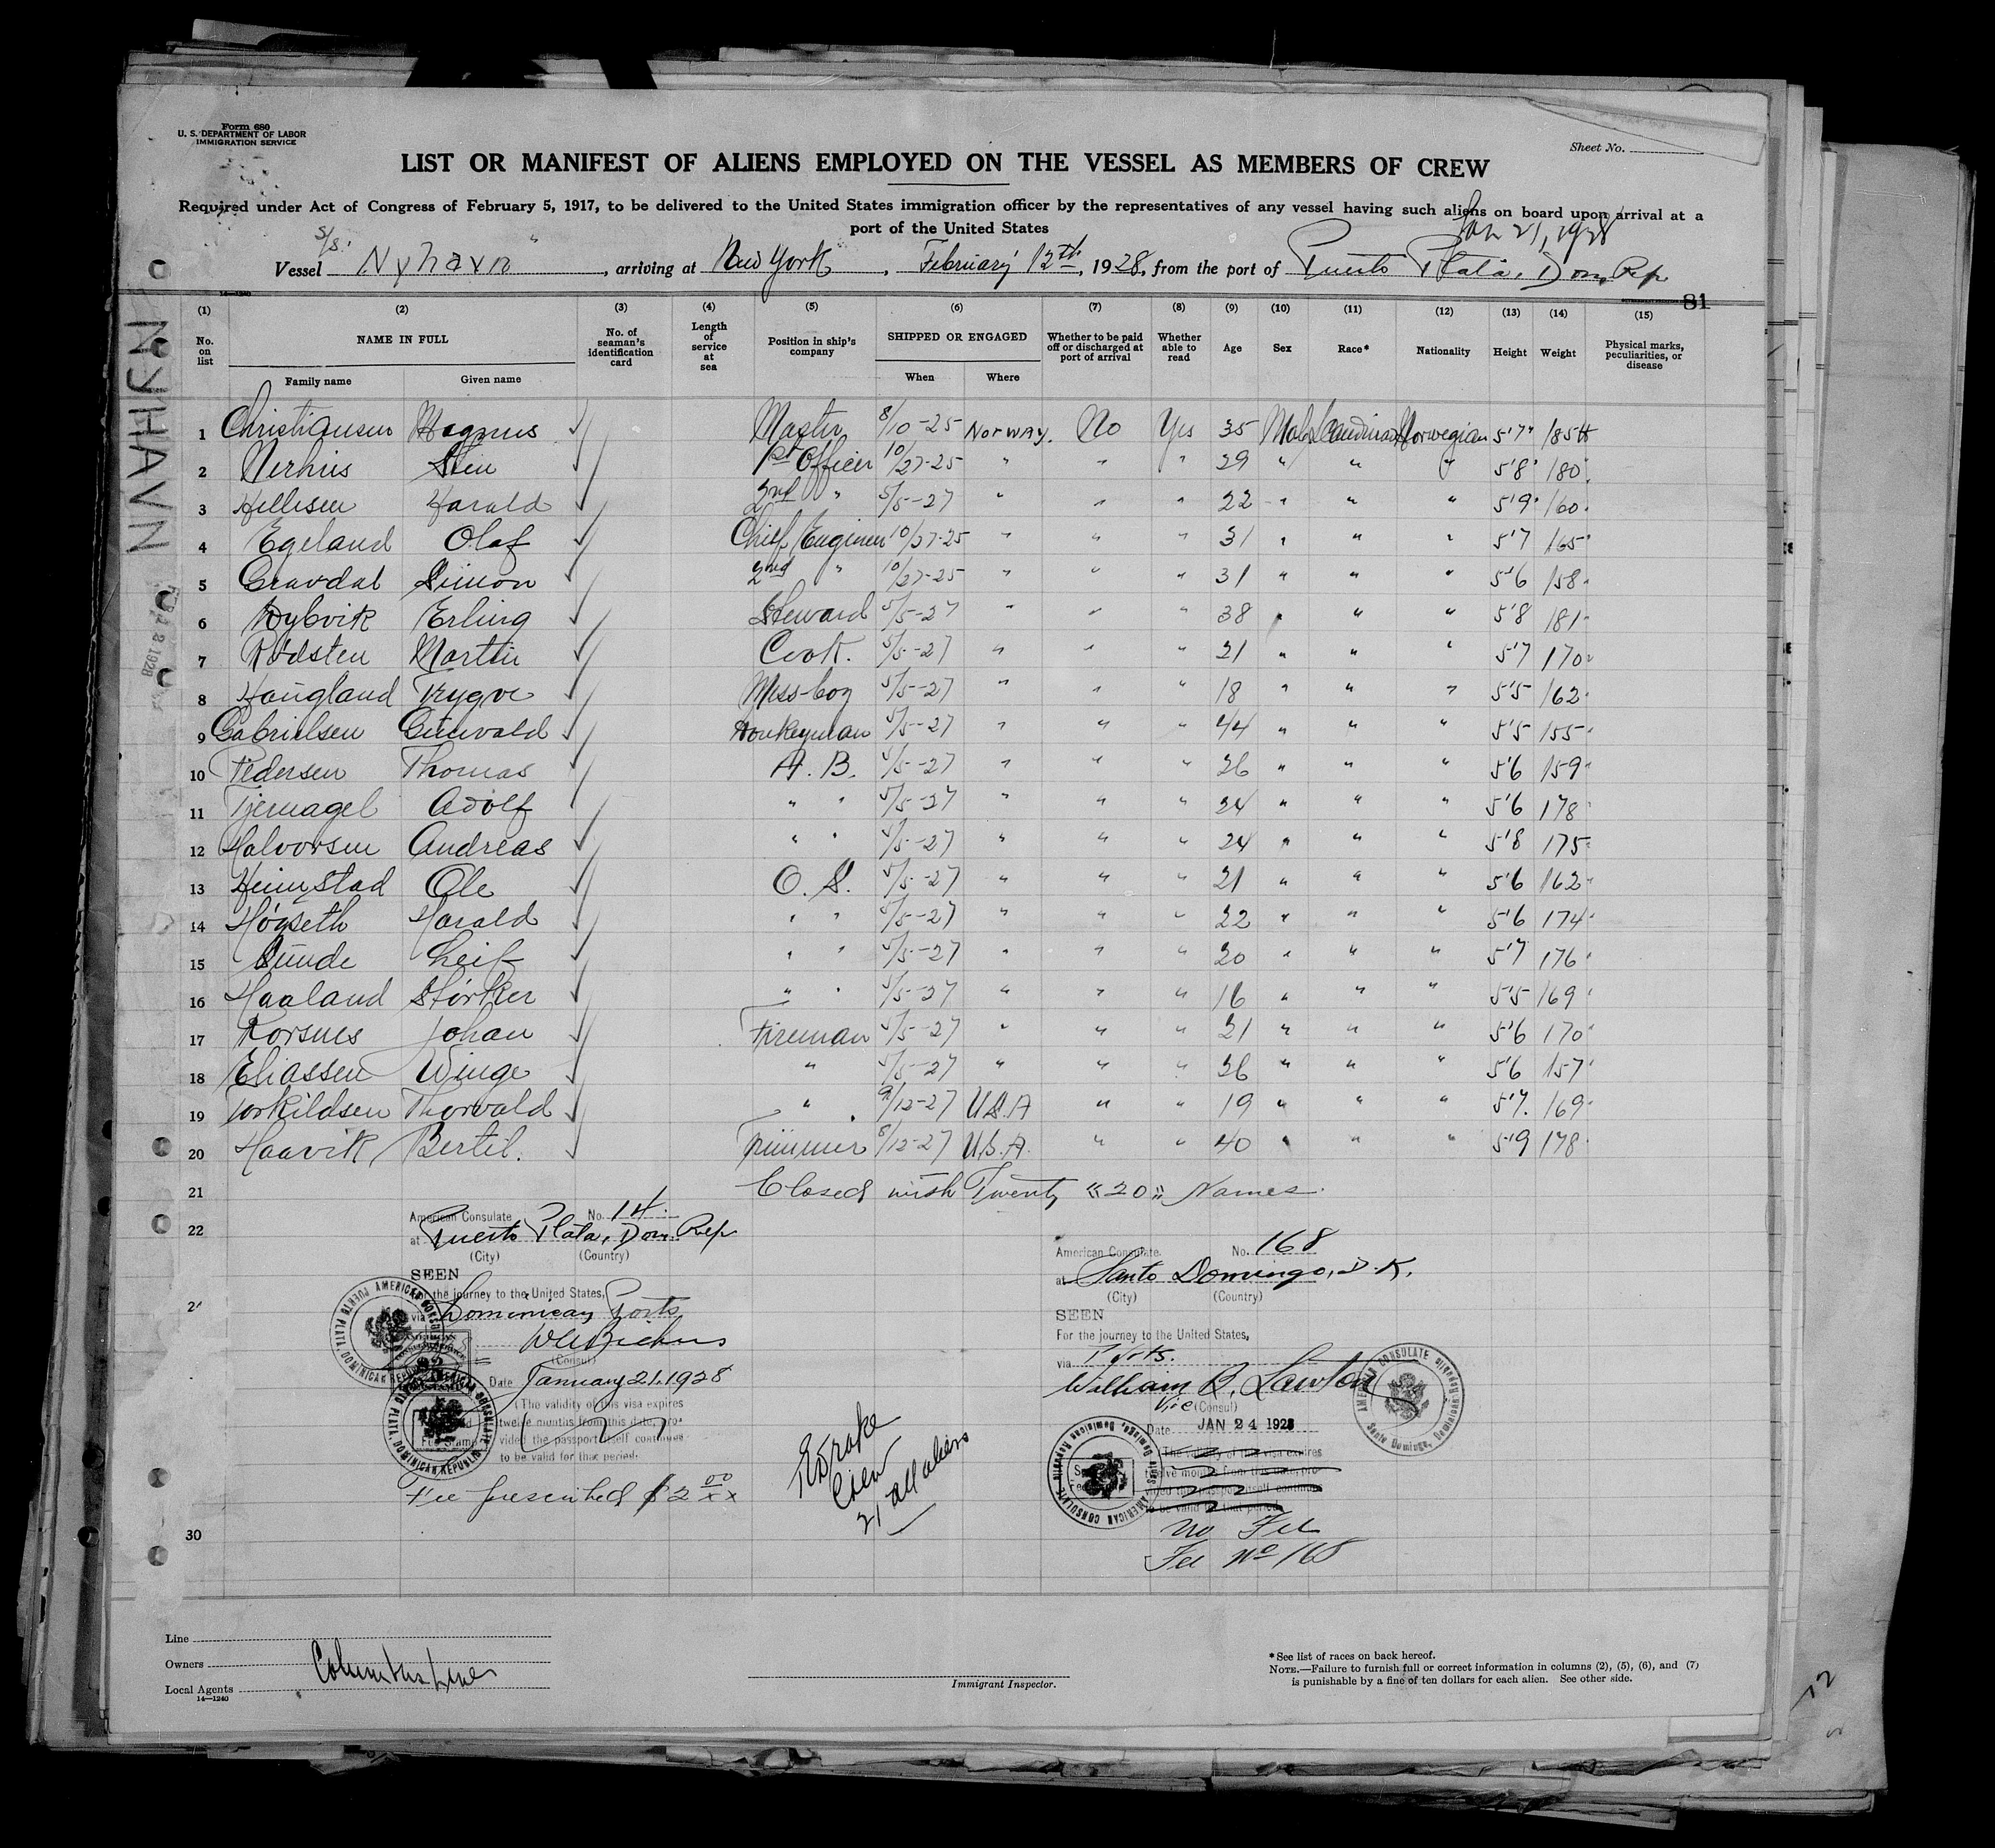 Form 680
U. S. DEPARTMENT OF LABOR
IMMIGRATION SERVICE
Sheet No.
LIST OR MANIFEST OF ALIENS EMPLOYED ON THE VESSEL AS MEMBERS OF CREW
Required under Act of Congress of February 5, 1917, to be delivered to the United States immigration officer by the representatives of any vessel having such aliens on board upon arrival at a
port of the United States
Jan 21, 1928
S/S.
Vessel Nyhavn, arriving at New York, February 12th, 1928, from the port of Puerto Plata, Dom. Rep
81
NYHAVN
(1) (2) (3) (4) (5) (6) (7) (8) (9) (10) (11) (12) (13) (14) (15)
No. on list NAME IN FULL No. of seaman's identification card Length of service at sea Position in ship's company SHIPPED OR ENGAGED Whether to be paid off or discharged at port of arrival Whether able to read Age Sex Race* Nationality Height Weight Physical marks, peculiarities, or disease
Family name Given name When Where
1 Christiansen Magnus ✓ Master 8/10-25 Norway. No Yes 35 Male Scandinav Norwegian 5'7" 185 lb
2 Nerhus ✓ 1st Officer 10/27-25 " " " 29 " " " 5'8" 180
3 Hellesen Harald ✓ 2nd " 5/5-27 " " " 22 " " " 5'9" 160
4 Egeland Olaf ✓ Chief Engineer 10/27-25 " " " 31 " " " 5'7 165
5 Gravdal Simon ✓ 2nd " 10/27-25 " " " 31 " " " 5'6 158
6 Dybvik Erling ✓ Steward 5/5-27 " " " 38 " " " 5'8 181
7 Rødsten Martin ✓ Cook. 5/5-27 " " " 21 " " " 5'7 170
8 Haugland Trygve ✓ Mess-boy 5/5-27 " " " 18 " " " 5'5 162
9 Gabrielsen Gunvald ✓ Donkeyman 5/5-27 " " " 44 " " " 5'5 155
10 Pedersen Thomas ✓ A. B. 5/5-27 " " " 26 " " " 5'6 159
11 Tjernagel Adolf ✓ " " 5/5-27 " " " 24 " " " 5'6 178
12 Halvorsen Andreas ✓ " " 5/5-27 " " " 24 " " " 5'8 175
13 Heimstad Ole ✓ O. S. 5/5-27 " " " 21 " " " 5'6 162
14 Høyseth Harald ✓ " " 5/5-27 " " " 22 " " " 5'6 174
15 Sunde Leif ✓ " " 5/5-27 " " " 20 " " " 5'7 176
16 Haaland Størker ✓ " " 5/5-27 " " " 16 " " " 5'5 169
17 Korsnes Johan ✓ Fireman 5/5-27 " " " 21 " " " 5'6 170
18 Eliassen Winge ✓ " 5/5-27 " " " 26 " " " 5'6 157
19 Torkildsen Thorvald ✓ " 9/12-27 U.S.A " " 19 " " " 5'7. 169
20 Haavik Bertil. ✓ Trimmer 8/12-27 U.S.A. " " 40 " " " 5'9 178
21 Closed with Twenty "20" Names.
22
30
American Consulate No. 14.
at Puerto Plata, Dom. Rep
(City) (Country)
SEEN
the journey to the United States,
via Dominican Ports
(Consul)
Date January 21, 1928
The validity of this visa expires
twelve months from this date, pro-
vided the passport itself continues
to be valid for that period.
Fee prescribed $2 00/xx
AMERICAN CONSULATE PUERTO PLATA, DOMINICAN REPUBLIC
Crew
21 all aliens
American Consulate. No. 168
at Santo Domingo, D. R.
(City) (Country)
SEEN
For the journey to the United States,
via Ports.
William B. Lawton
Vice (Consul)
Date JAN 24 1928
The validity of this visa expires
twelve months from this date, pro-
vided the passport itself continues
to be valid for that period.
AMERICAN CONSULATE Santo Domingo, Dominican Republic
No Fee
Fee No 168
Line
Owners
Local Agents
Columbus Line
14—1240
Immigrant Inspector.
*See list of races on back hereof.
NOTE.—Failure to furnish full or correct information in columns (2), (5), (6), and (7)
is punishable by a fine of ten dollars for each alien. See other side.